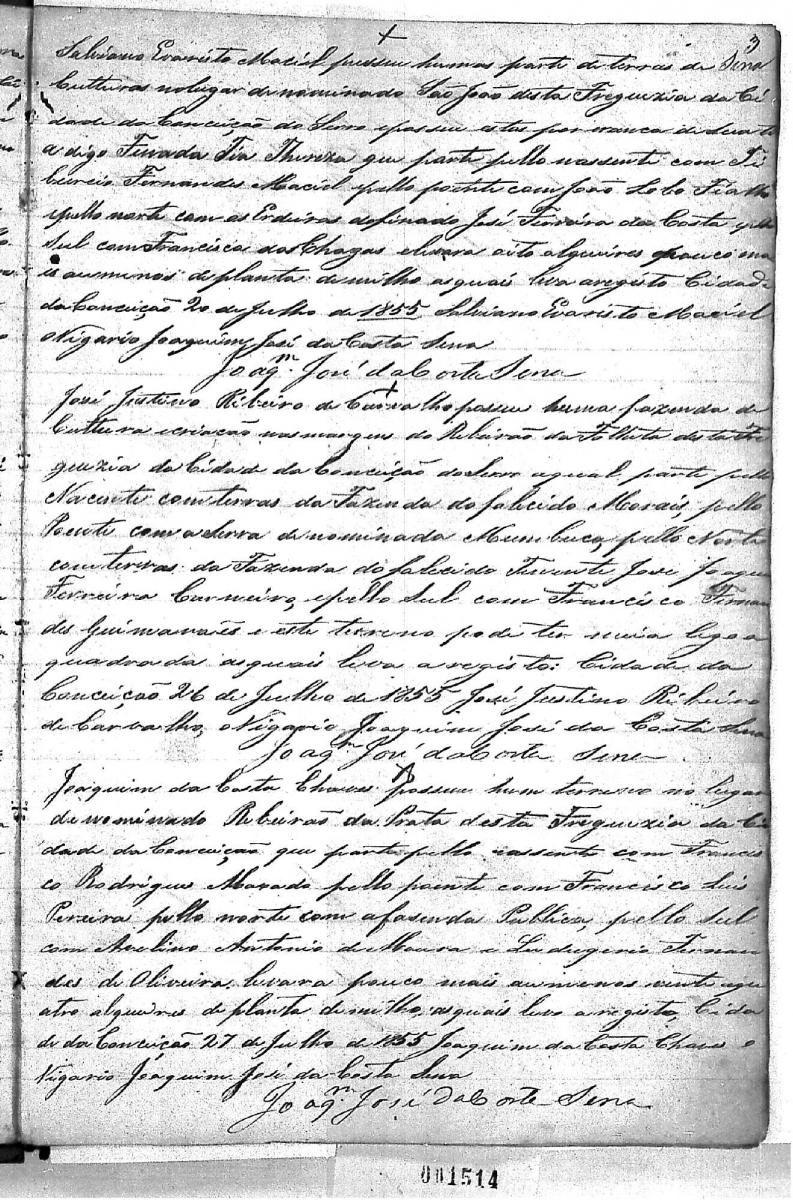 3
Salviano Evaristo Maciel possue humas parte de terras de Sena
Culturas no lugar denominado São João desta Freguezia da Ci
dade da Conceição do Serro epossue estas por
a digo Finada Tia Thereza que parte pello nassente com Ti
burcio Fernandes Maciel epello poente com João Lobo
epello norte com os Erdeiros dofinado José Ferreira da Costa epello
Sul com Francisco das Chagas elevara oito alqueires pouco ma
is aumenos deplanta de milho asquais leva aregisto Cidade
da Conceição 20 de Julho de 1855 Salviano Evaristo Maciel
oVigario Joaquim José da Costa Sena
Joaqm. José da Costa Sena
José Justino Ribeiro de Carvalho possue huma fazenda de
Cultura ecriação nas margens do Ribeirão da Folheta desta Fre
guezia da Cidade da Conceição do Serro aqual parte pello
Nacente com terras da Fazenda do falecido Morais, pello
Poente com a Serra denominada Mumbuca, pello Norte
com terras da Fazenda do falecido Tenente José Joaquim
Ferreira Carneiro, epello Sul com Francisco Fernan
des Guimaraês e este terreno pode ter meia legoa
quadrada asquais leva a registo: Cidade da
Conceição 26 de Julho de 1855 José Justino Ribeiro
de Carvalho, oVigario Joaquim José da Costa Sena
Joaqm. José da Costa Sena
Joaquim da Costa Chaves possue hum terreno no lugar
denominado Ribeirão da Prata desta Freguezia da Ci
dade da Conceição que parte pello nassente com Francis
co Rodrigues Morado pello poente com Francisco Luis
Pereira pello norte com afasenda Publica, pello Sul
com Avelino Antonio de Moura e Ludugerio Fernan
des de Oliveira, levara pouco mais aumenos vinte equ
atro alqueires de planta de milho, asquais leva a registo, Cida
de da Conceição 27 de Julho de 1855 Joaquim da Costa Chaves o
Vigario Joaquim José da Costa Sena
Joaqm. José da Costa Sena
001514